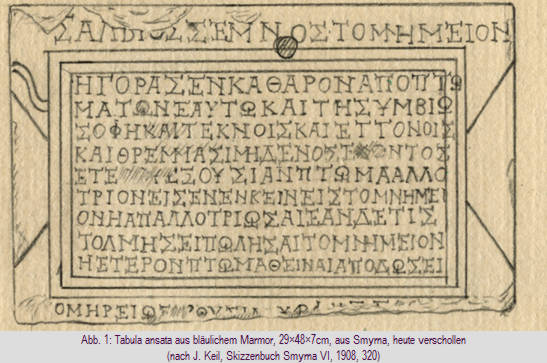 ΣΑΛΠΙΟΣΣΕΜΝΟΣΤΟΜΗΜΕΙΟΝ
ΗΓΟΡΑΣΕΝΚΑΘΑΡΟΝΑΠΟΠΤΩ
ΜΑΤΩΝΕΑΥΤΩΚΑΙΤΗΣΥΜΒΙΩ
ΣΟΦΗΚΑΙΤΕΚΝΟΙΣΚΑΙΕΓΓΟΝΟΙΣ
ΚΑΙΘΡΕΜΜΑΣΙΜΗΔΕΝΟΣΕΧΟΝΤΟΣ
ΕΤΕ ΥΕΞΟΥΣΙΑΝΠΤΩΜΑΑΛΛΟ
ΤΡΙΟΝΕΙΣΕΝΕΝΚΕΙΝΕΙΣΤΟΜΝΗΜΕΙ
ΟΝΗΑΠΑΛΛΟΤΡΙΩΣΑΙΕΑΝΔΕΤΙΣ
ΤΟΛΜΗΣΕΙΠΩΛΗΣΑΙΤΟΜΝΗΜΕΙΟΝ
ΗΕΤΕΡΟΝΠΤΩΜΑΘΕΙΝΑΙΑΠΟΔΩΣΕΙ
ΟΜΗΡΕΙΩΓΕΡΟΥΣΙΑ
Abb. 1: Tabula ansata aus bläulichem Marmor, 29×48×7cm, aus Smyrna, heute verschollen
(nach J. Keil, Skizzenbuch Smyrna VI, 1908, 320)